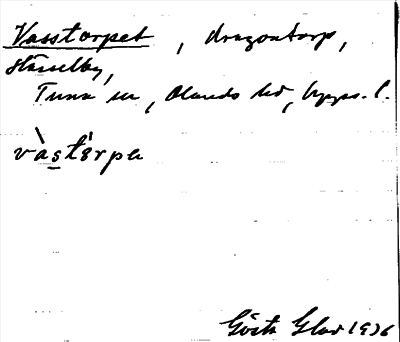 Vasstorpet, dragontorp,
Hässelby,
Tuna sn, Olands hd, Upps. l.
vàstórpə
Gösta Glad 1936